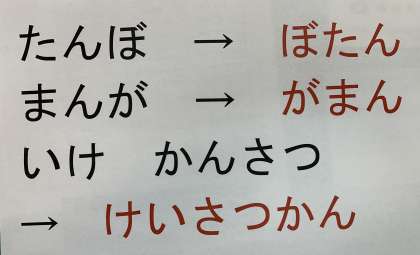 たんぼ → ぼたん
まんが → がまん
いけ かんさつ
→ けいさつかん